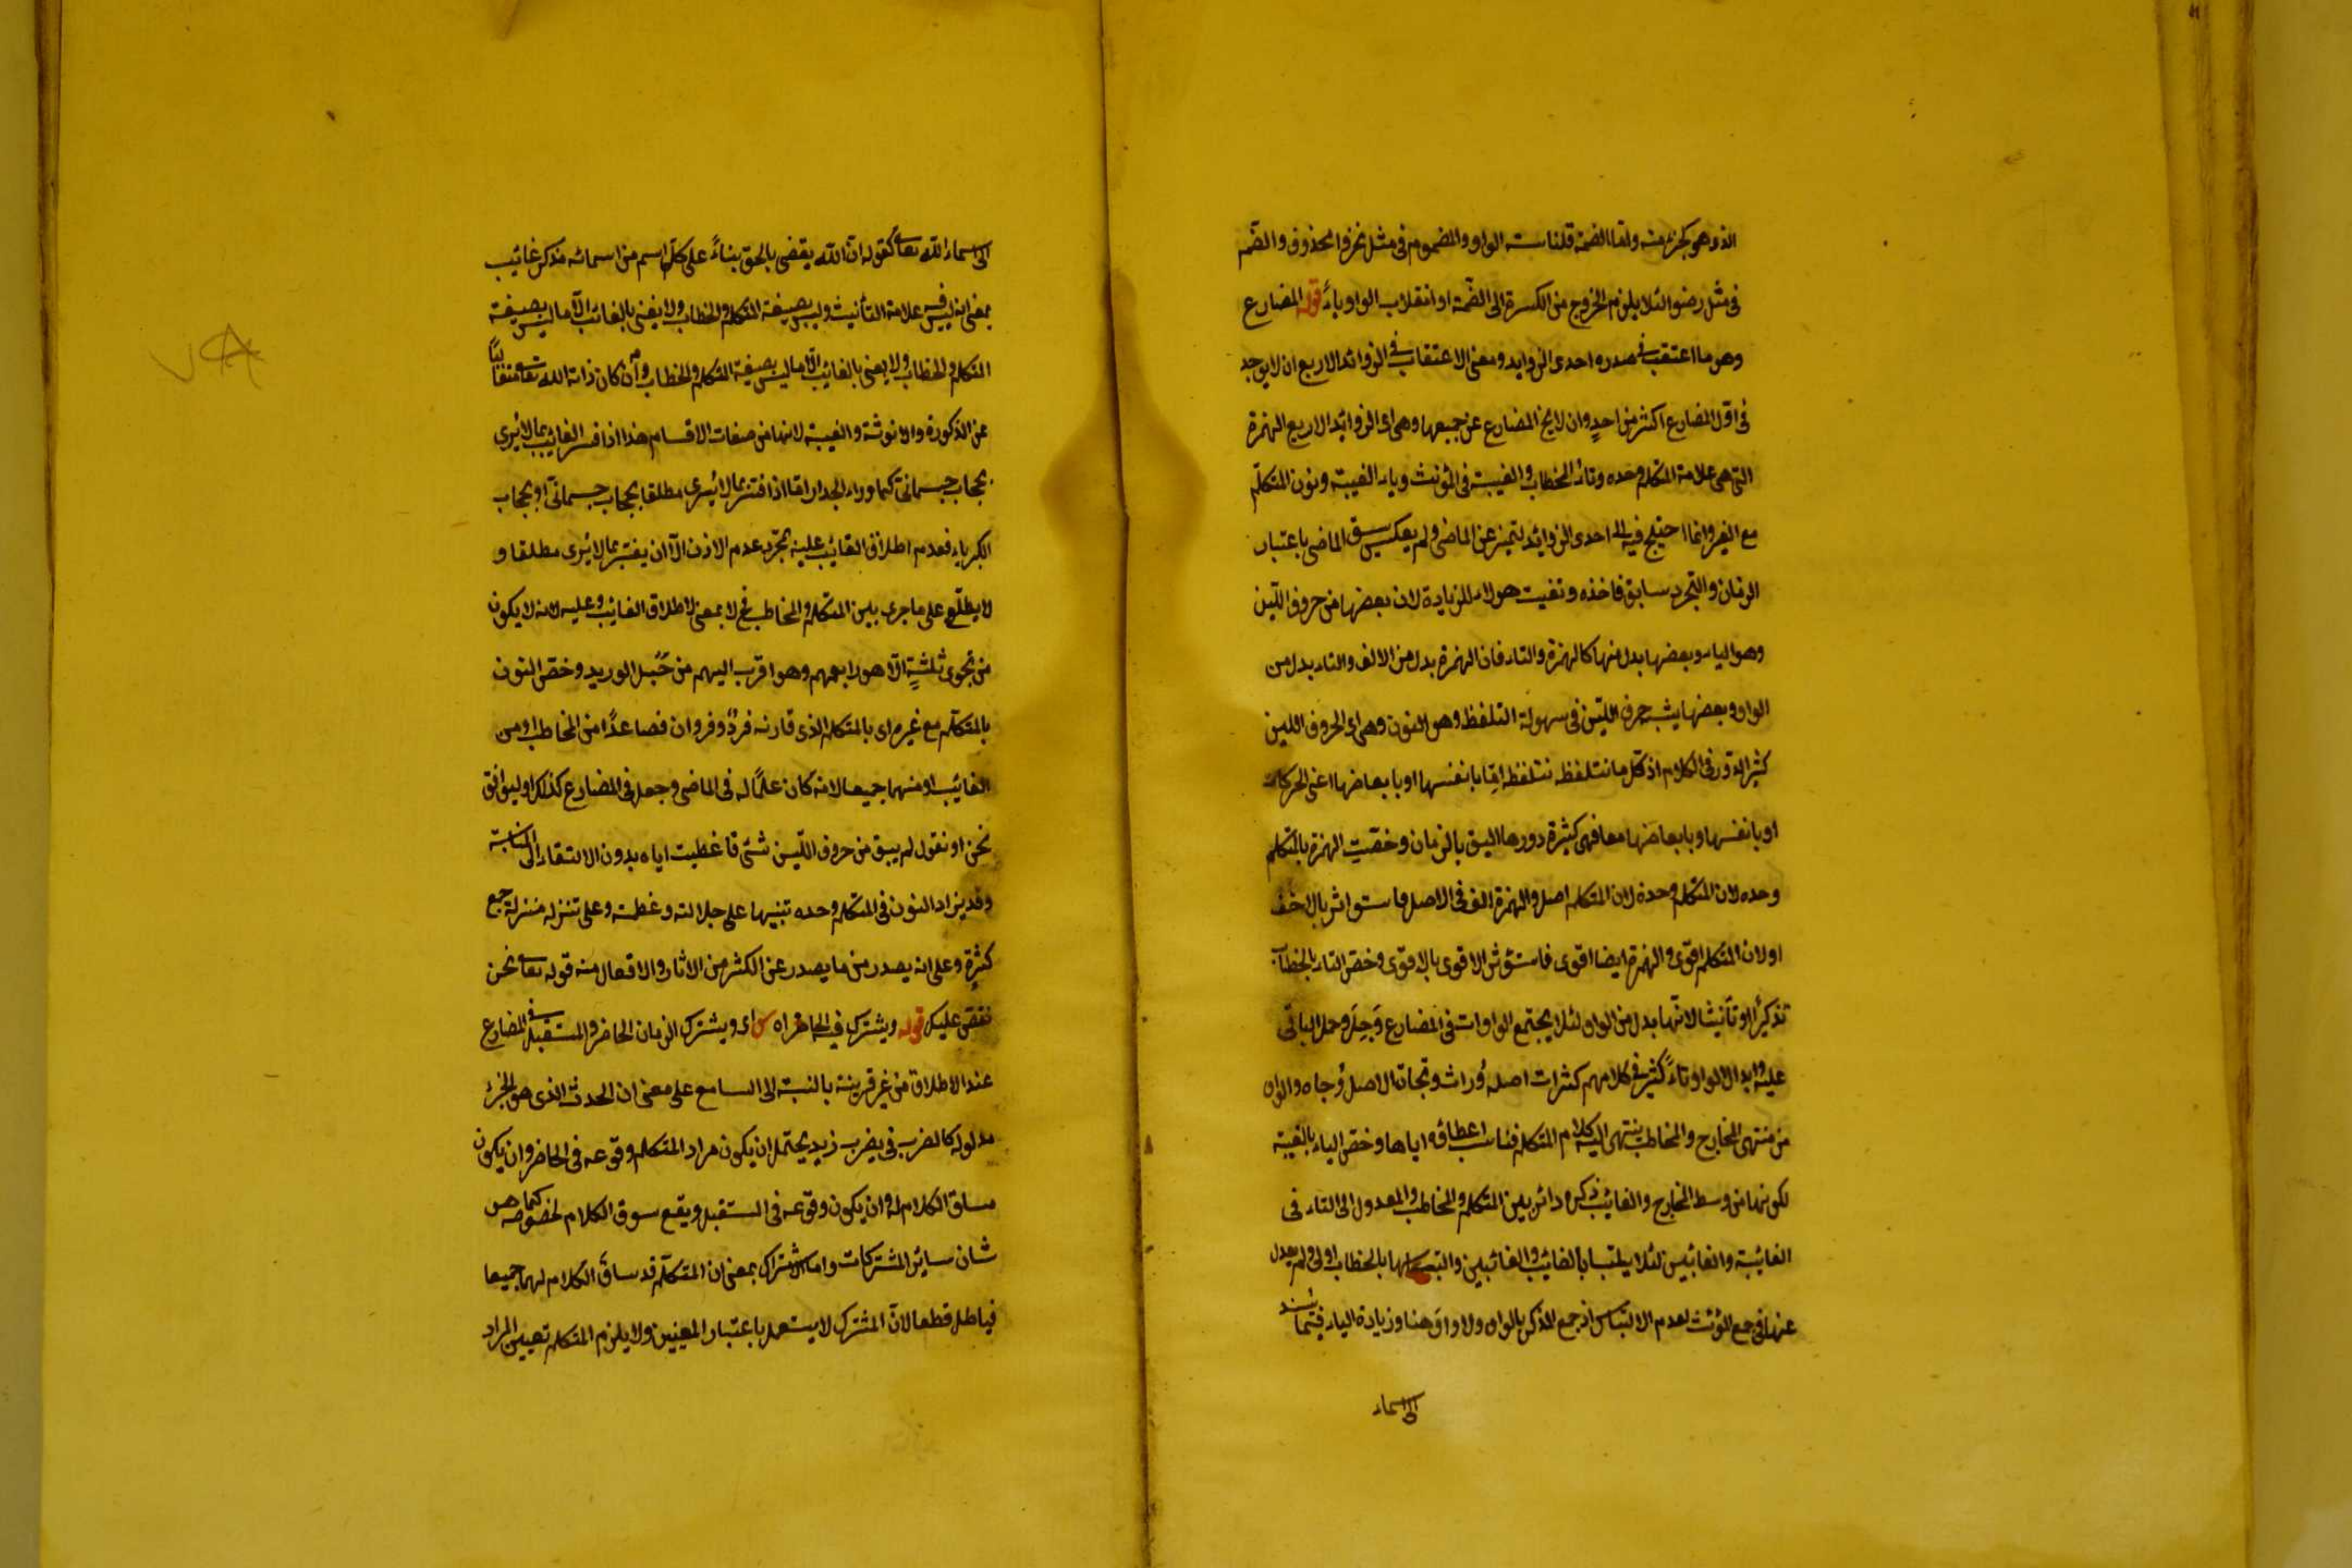 الذي هو كجزء منه واما الضمة فلمناسبة الواو والمضموم في مثل غزوا محذوف والضم
في مثل رضوا لئلا يلزم الخروج من الكسرة الى الضمة او انقلاب الواو ياءً قوله المضارع
وهو ما اعتقب في صدره احدى الزوايد ومعنى الاعتقاب في الزوائد الاربع ان لا يوجد
في اول المضارع اكثر من احدٍ وان لا يخ المضارع عن جميعها وهي اى الزوائد الاربع الهمزة
التي هي علامة المتكلم وحده وتاء المخطاب والغيبة في المؤنث وياء الغيبة ونون المتكلّم
مع الغير وانما احتيج فيه الى احدى الزوائد لتميز عن الماضي ولم يعكس سبق الماضي باعتبار
الزمان والتجرد سابق فاخذه وتعينت هولاء للزيادة لان بعضها من حروف اللّين
وهو الياء وبعضها بدل منها كالهمزة والتاء فان الهمزة بدل من الالف والتاء بدل من
الواو وبعضها يشبه حرف اللّين في سهولة التلفظ وهو النون وهي اى الحروف اللين
كثير الدور في الكلام اذ كل ما نتلفظه نتلفظه امّا بانفسها او بابعاضها اعني الحركات
او بانفسها وبابعاضها معا فهي كثيرة دورها اليق بالزمان وخصّت الهمزة بالمتكلم
وحده لان المتكلم وحده لان المتكلم اصل والهمزة الف في الاصل فاستوثر بالاخف
او لان المتكلم اقوى والهمزة ايضا اقوى فاستؤثر الاقوى بالاقوى وخص التاء بالخطاب
تذكيرًا وتأنيثا لانّها بدل من الواو لئلا يجتمع الواوات في المضارع وَجِلَ وحمل الباقي
عليه وابدال الواو تاءً كثير في كلامهم كتراث اصله وُراث وتجاه الاصل وُجاه والواو
من منتهى المخارج والمخاطب ينتهى اليه كلام المتكلم فناسب اعطاؤه اياها وخص الياء بالغيبة
لكونها من وسط المخارج والغائب ذكره دائر بين المتكلم والمخاطب والمعدول الى التاء في
الغائبة والغائبتين لئلا يلتبسا بالغائب والغائبين والتباسهما بالخطاب اولى ولم يعدل
عنها في جمع المؤنث لعدم الالتباس اذ جمع المذكر بالواو ولا واو هنا وزيادة الياء فيما يسند
الى اسماء
الى اسماء الله تعالى كقوله انّ الله يقضى بالحق بناءً على كلّ اسم من اسمائه مذكر غائب
بمعنى انه ليس فيه علامة التأنيث وليس بصيغة المتكلم والخطاب ولا يعنى بالغائب الّا ما ليس بصيغة
المتكلم والخطاب ولا يعنى بالغائب الّا ما ليس بصيغة المتكلم والخطاب وان كان ذاته الله تعالى متعاليًا
عن الذكورة والانوثة والغيبة لانها من صفات الاقسام هذا اذا فسر الغائب بما لا يُرى
بحجاب جسمانيّ كما وراء الجدار امّا اذا فسّر بما لا يُرى مطلقا بحجاب جسمانيّ او بحجاب
الكبرياء فعدم اطلاق الغائب عليه بمجرّد عدم الاذن الّا ان يفسّر بما لا يُرى مطلقا و
لا يطلّع على ما جرى بين المتكلم والمخاطب فح لا معنى لاطلاق الغائب عليه لانه لا يكون
من نجوى ثلثةٍ الّا هو رابعهم وهو اقرب اليهم من حَبل الوريد وخص النون
بالمتكلّم مع غيره اى بالمتكلم الذى قارنه فردٌ وفردان فصاعدًا من المخاطب او من
الغائب او منهما جميعا لانه كان علمًا له في الماضي وجعل في المضارع كذلك او ليوافق
نحن او نقول لم يبق من حروف اللّين شئ فاعطيت اياه بدون الالتقاء الى المناسبة
وقد يزاد النون في المتكلم وحده تنبيها على جلالته وعظمته وعلى تنزله منزلة جمع
كثرةٍ وعلى انه يصدر من ما يصدر عن الكثير من الاثار والافعال منه قوله تعالى نحن
نقصّ عليك قوله ويشترك فيه الحاضر اه اى ويشترك الزمان الحاضر والمستقبل في المضارع
عند الاطلاق من غير قرينة بالنسبة الى السامع على معنى ان الحدث الذى هو الجزء
مدلوله كالضرب في يضرب زيد يحتمل ان يكون مراد المتكلم وقوعه في الحاضر وان يكون
مساق الكلام له وان يكون وقوعه في المستقبل ويقع سوق الكلام لخصوصه كما هو
شان سائر المشتركات واما الاشتراك بمعنى ان المتكلّم قد ساقَ الكلام لهما جميعا
فباطل قطعا لانّ المشترك لا يستعمل باعتبار المعنيين ولا يلزم المتكلم تعيين المراد